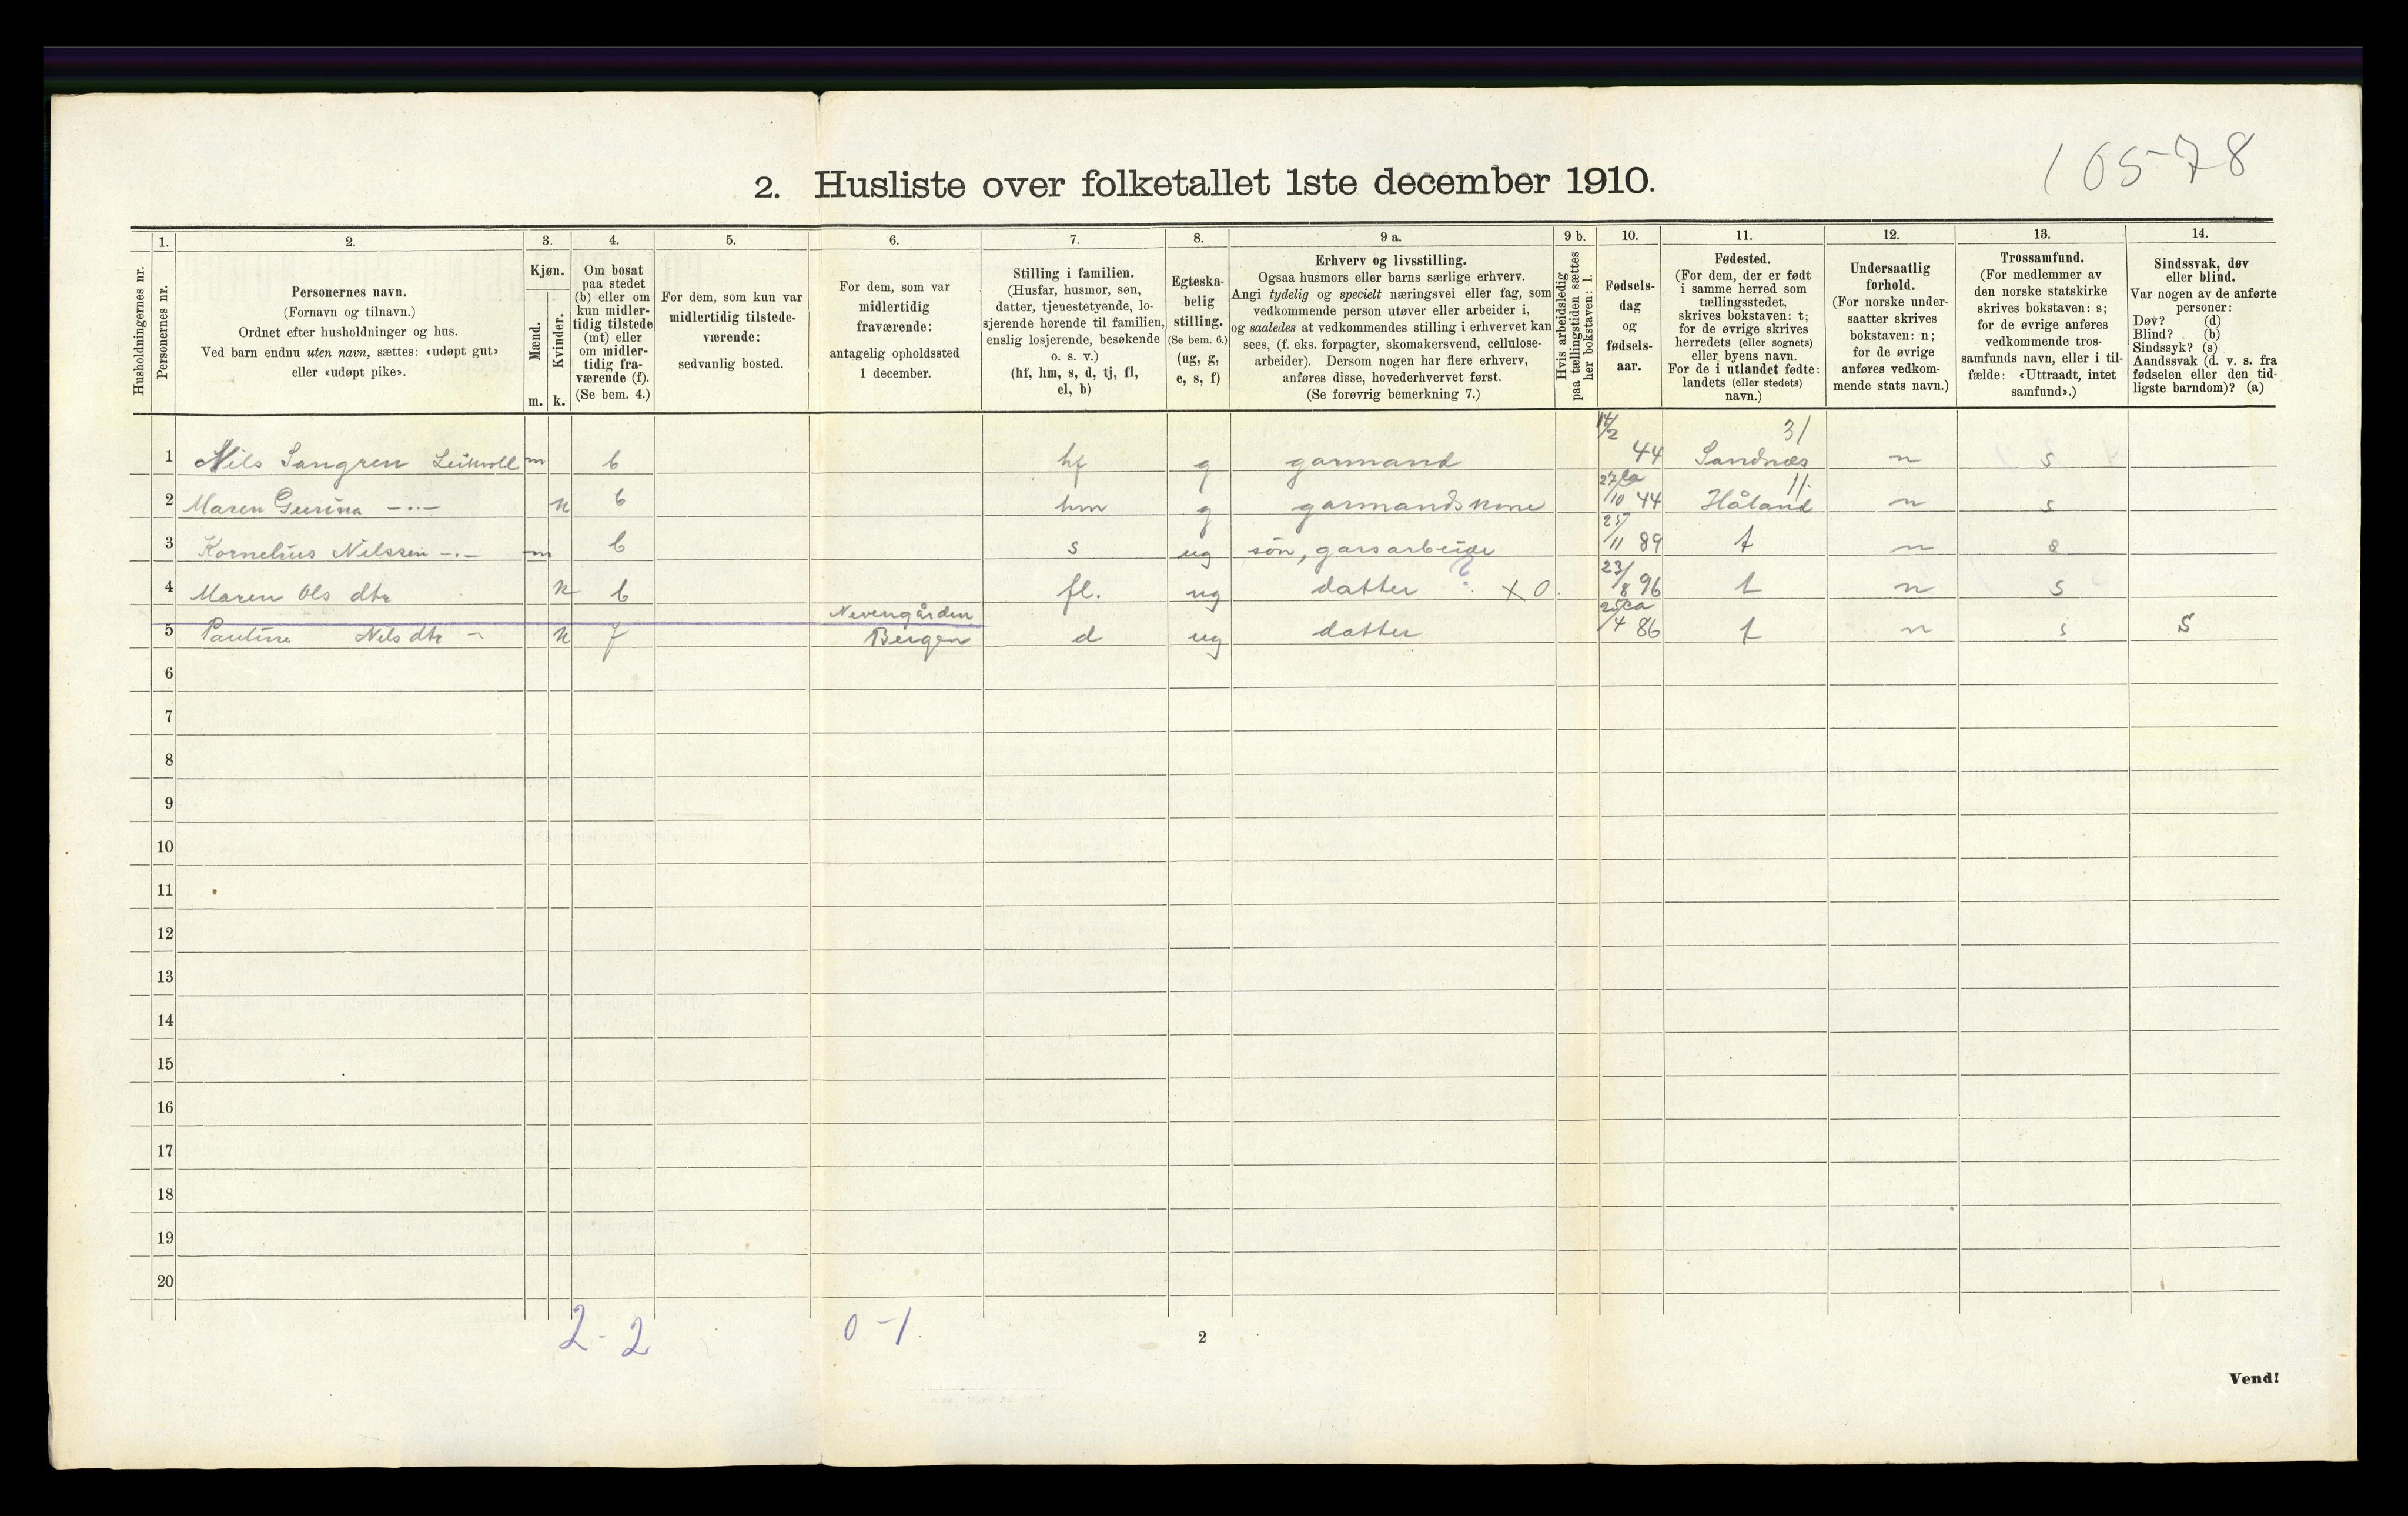 10578
2. Husliste over folketallet 1ste december 1910.
Husholdningernes nr.
1.
Personernes nr.
2.
Personernes navn.
(Fornavn og tilnavn.)
Ordnet efter husholdninger og hus.
Ved barn endnu uten navn, sættes: «udøpt gut»
eller «udøpt pike».
3.
Kjøn.
Mænd.
Kvinder.
m. k.
4.
Om bosat
paa stedet
(b) eller om
kun midler-
tidig tilstede
(mt) eller
om midler-
tidig fra-
værende (f).
(Se bem. 4.)
5.
For dem, som kun var
midlertidig tilstede-
værende:
sedvanlig bosted.
6.
For dem, som var
midlertidig
fraværende:
antagelig opholdssted
1 december.
7.
Stilling i familien.
(Husfar, husmor, søn,
datter, tjenestetyende, lo-
sjerende hørende til familien,
enslig losjerende, besøkende
o. s. v.)
(hf, hm, s, d, tj, fl,
el, b)
8.
Egteska-
belig
stilling.
(Se bem. 6.)
(ug, g,
e, s, f)
9 a.
Erhverv og livsstilling.
Ogsaa husmors eller barns særlige erhverv.
Angi tydelig og specielt næringsvei eller fag, som
vedkommende person utøver eller arbeider i,
og saaledes at vedkommendes stilling i erhvervet kan
sees, (f. eks. forpagter, skomakersvend, cellulose-
arbeider). Dersom nogen har flere erhverv,
anføres disse, hovederhvervet først.
(Se forøvrig bemerkning 7.)
9 b.
Hvis arbeidsledig
paa tællingstiden sættes
her bokstaven: l.
10.
Fødsels-
dag
og
fødsels-
aar.
11.
Fødested.
(For dem, der er født
i samme herred som
tællingsstedet,
skrives bokstaven: t;
for de øvrige skrives
herredets (eller sognets)
eller byens navn.
For de i utlandet fødte:
landets (eller stedets)
navn.)
12.
Undersaatlig
forhold.
(For norske under-
saatter skrives
bokstaven: n;
for de øvrige
anføres vedkom-
mende stats navn.)
13.
Trossamfund.
(For medlemmer av
den norske statskirke
skrives bokstaven: s;
for de øvrige anføres
vedkommende tros-
samfunds navn, eller i til-
fælde: «Uttraadt, intet
samfund».)
14.
Sindssvak, døv
eller blind.
Var nogen av de anførte
personer:
Døv? (d)
Blind? (b)
Sindssyk? (s)
Aandssvak (d. v. s. fra
fødselen eller den tid-
ligste barndom)? (a)
31
1 Nils Sangren m b hf g garmand 14/2 44 Sandnæs n s
11.
2 Maren Gurina -..- k b hm g garmandskone 27/10 44 Håland n s
3 Kornelius Nilssen -.- m b s ug søn, garsarbeide 25/11 89 t n s
4 Maren Ols dtr k b fl. ug datter ? x 0 23/8 96 t n s
5 Pauline Nils dtr - k f Nevengården Bergen d ug datter 25/4 86 t n s S
6
7
8
9
10
11
12
13
14
15
16
17
18
19
20
2 - 2 0 - 1
2
Vend!